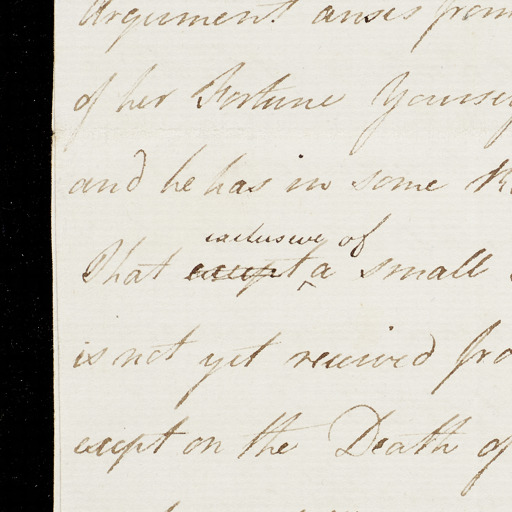 Argument arises from
of her Fortune Yourself
and he has in some
exclusive of
That except a small
is not yet received fro
except on the Death of